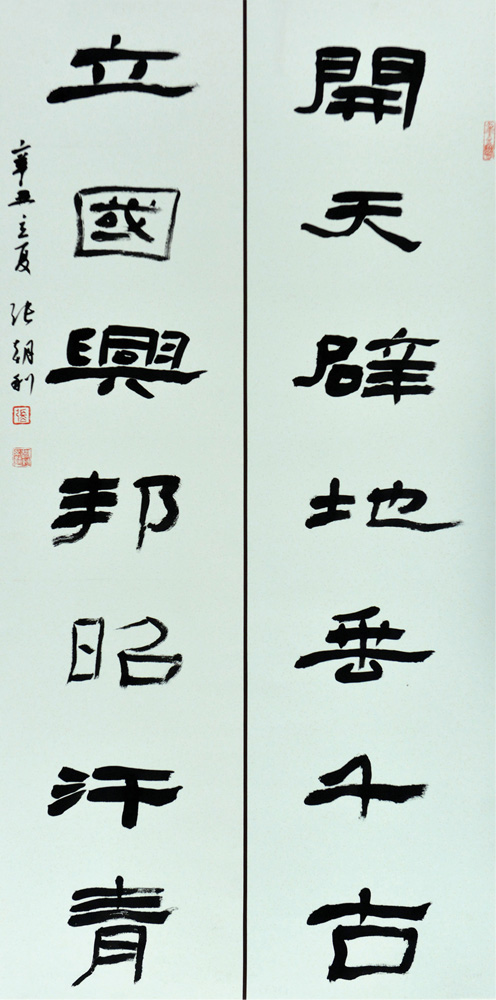 開天辟地垂千古
立國興邦昭汗青
辛丑立夏 張朝利
張